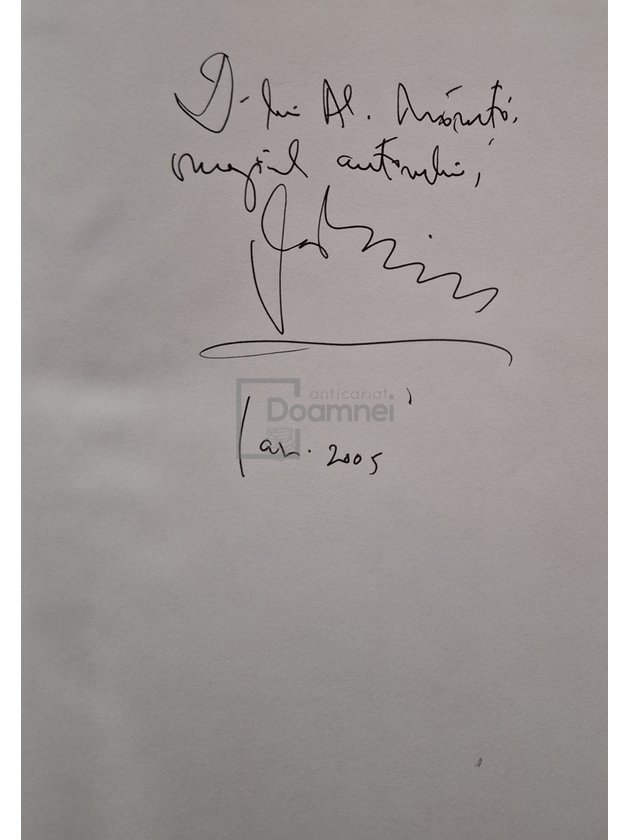 D-lui Al.
omagiul autorului,
anticariat
Doamnei
Ian. 2005